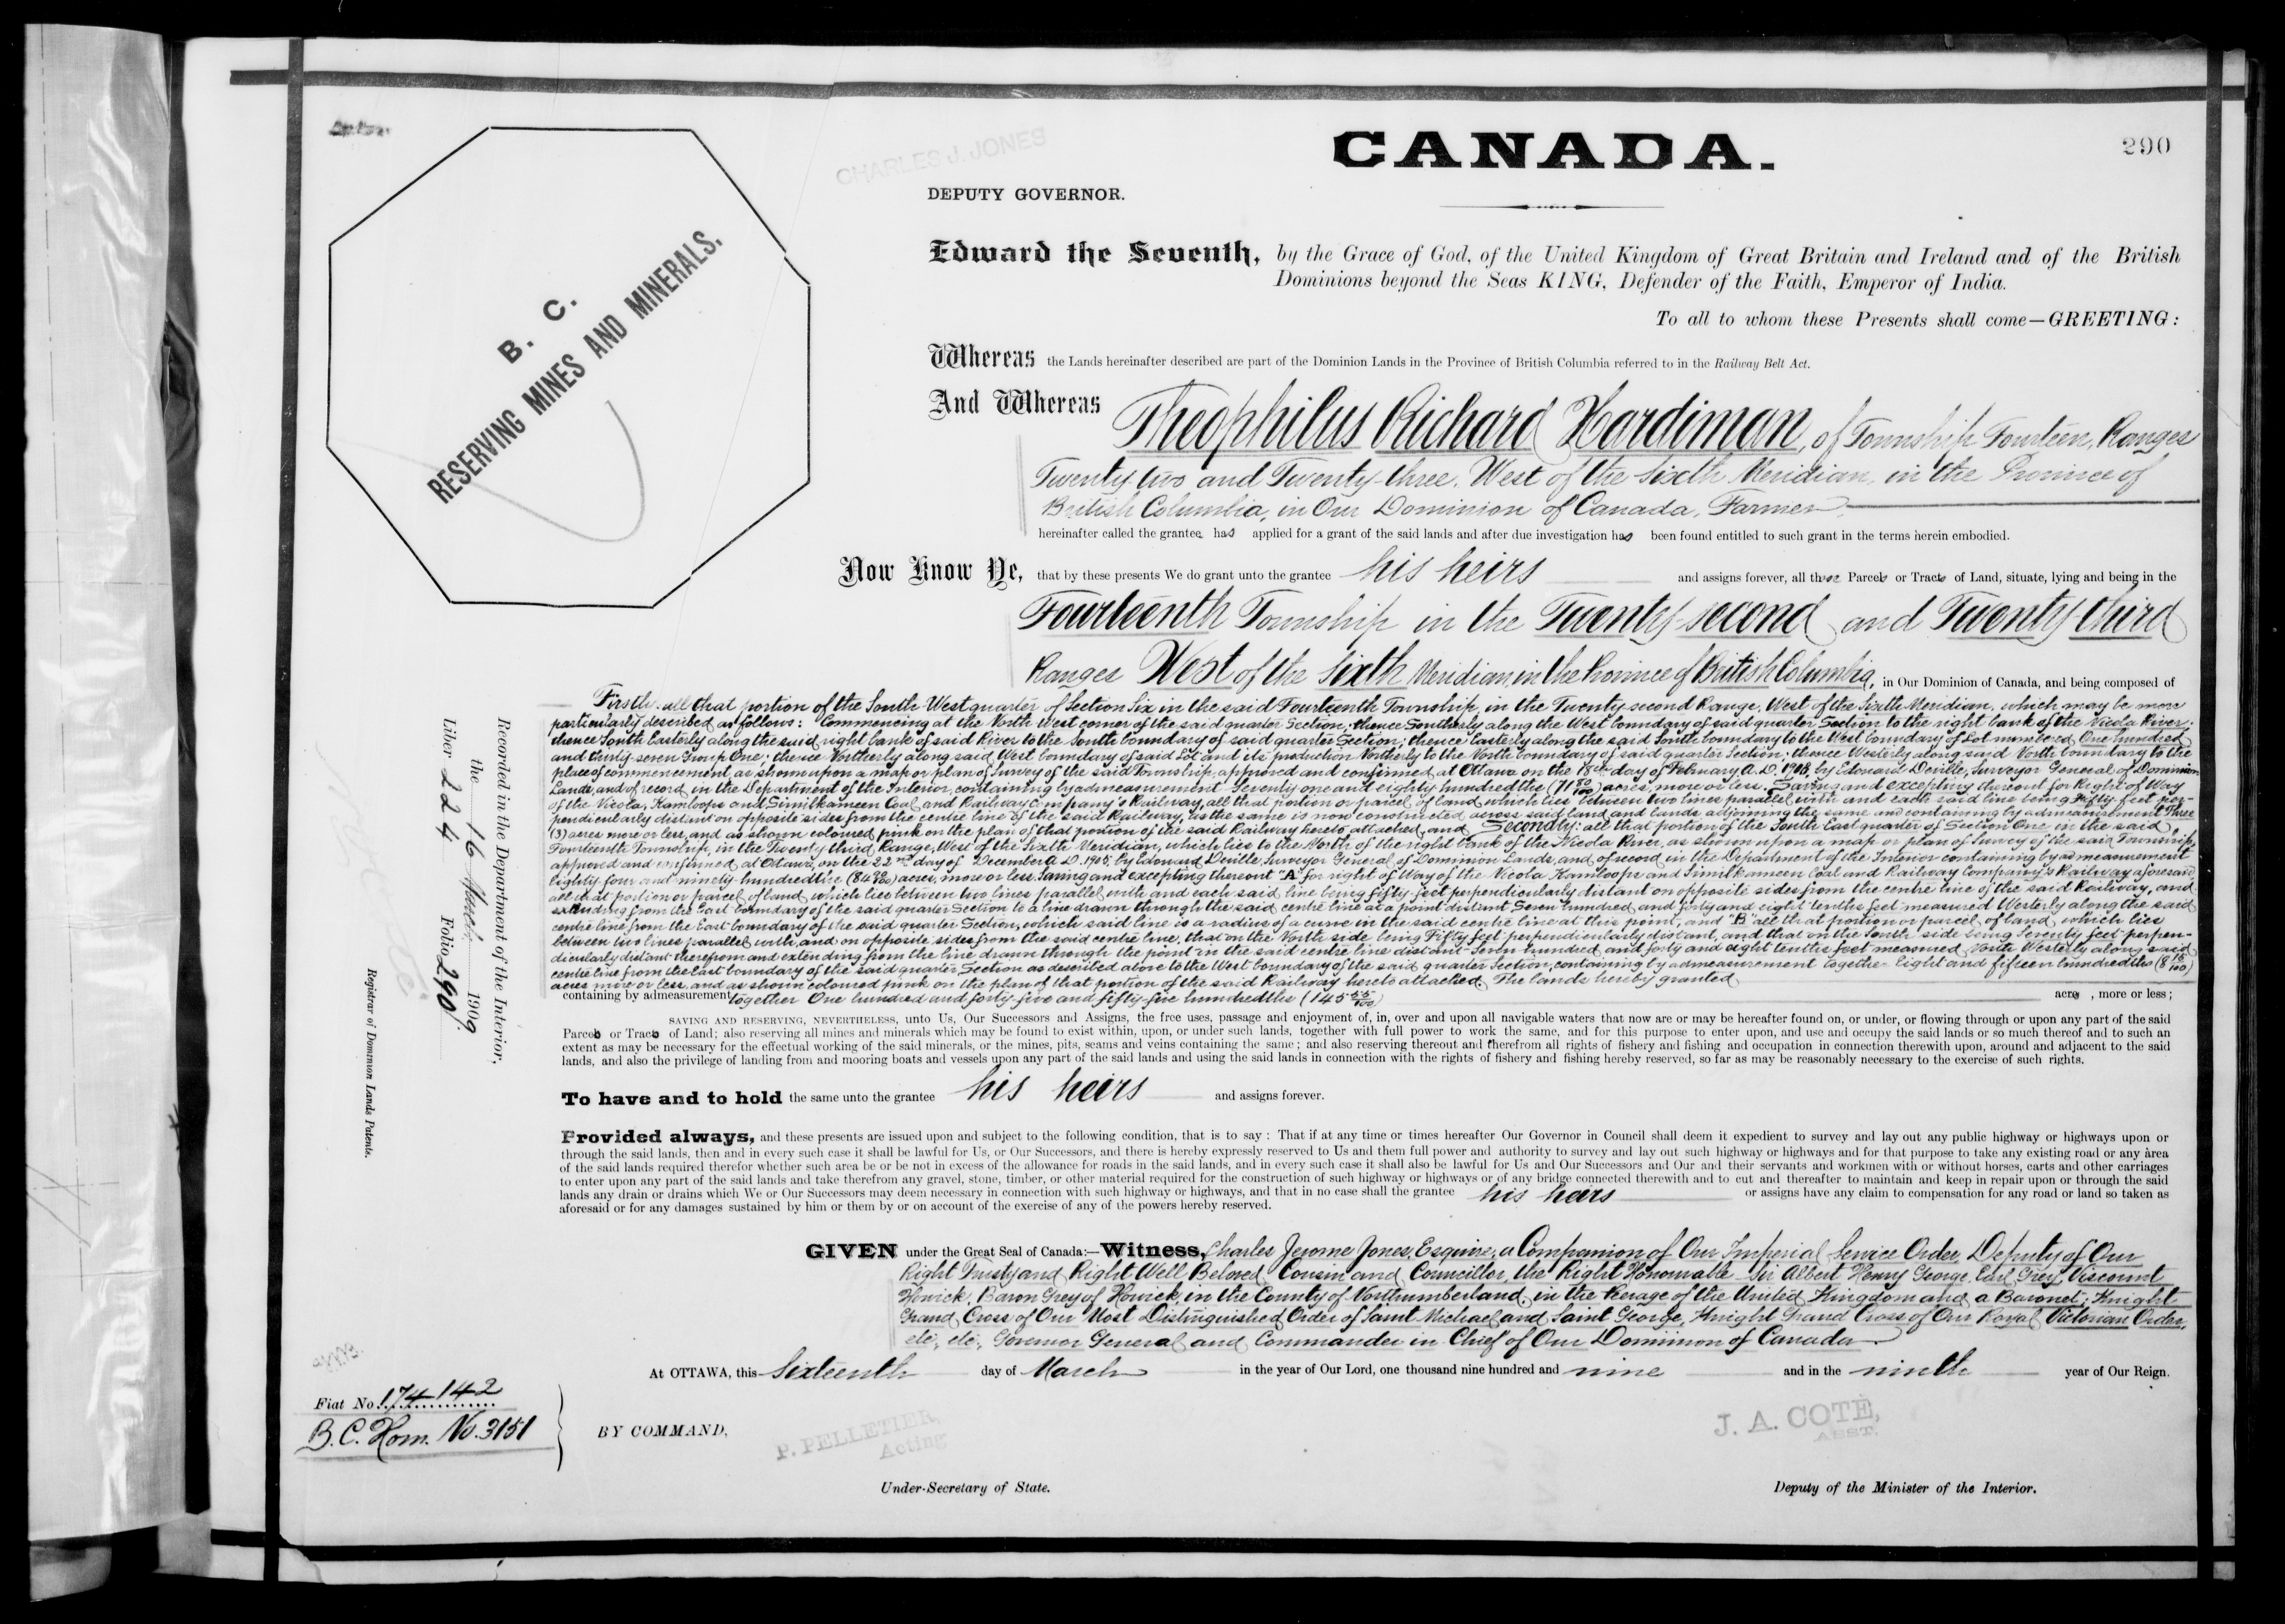 290
CANADA.
CHARLES J. JONES
DEPUTY GOVERNOR.
B. C.
RESERVING MINES AND MINERALS.
Edward the Seventh, by the Grace of God, of the United Kingdom of Great Britain and Ireland and of the British
Dominions beyond the Seas KING, Defender of the Faith, Emperor of India.
To all to whom these Presents shall come—GREETING:
Whereas the Lands hereinafter described are part of the Dominion Lands in the Province of British Columbia referred to in the Railway Belt Act.
And Whereas Theophilus Richard Hardiman, of Township Fourteen, Ranges
Twenty-two and Twenty-three, West of the Sixth Meridian, in the Province of
British Columbia, in Our Dominion of Canada, Farmer
hereinafter called the grantee has applied for a grant of the said lands and after due investigation has been found entitled to such grant in the terms herein embodied.
Now Know Ye, that by these presents We do grant unto the grantee his heirs and assigns forever, all those Parcels or Tracts of Land, situate, lying and being in the
Fourteenth Township in the Twenty-second and Twenty-third
Ranges West of the Sixth Meridian, in the Province of British Columbia, in Our Dominion of Canada, and being composed of
Firstly: all that portion of the South West quarter of Section Six in the said Fourteenth Township, in the Twenty second Range, West of the Sixth Meridian, which may be more
particularly described as follows: Commencing at the North West corner of the said quarter Section; thence Southerly along the West boundary of said quarter Section to the right bank of the Nicola River;
thence South Easterly along the said right bank of said River to the South boundary of said quarter Section; thence Easterly along the said South boundary to the West boundary of Lot numbered One hundred
and thirty-seven Group One; thence Northerly along said West boundary of said Lot and its production Northerly to the North boundary of said quarter Section; thence Westerly along said North boundary to the
place of commencement, as shown upon a map or plan of survey of the said Township, approved and confirmed at Ottawa on the 18th day of February A.D. 1908, by Edouard Deville, Surveyor General of Dominion
Lands, and of record in the Department of the Interior, containing by admeasurement Seventy one and eighty hundredths (71 80/100) acres, more or less. Saving and excepting thereout for Right of Way
of the Nicola, Kamloops and Similkameen Coal and Railway Company's Railway, all that portion or parcel of land which lies between two lines parallel with and each said line being fifty feet per-
pendicularly distant on opposite sides from the centre line of the said Railway, as the same is now constructed across said land and lands adjoining the same and containing by admeasurement Three
(3) acres more or less, and as shown coloured pink on the plan of that portion of the said Railway hereto attached, and Secondly: all that portion of the South East quarter of Section One in the said
Fourteenth Township, in the Twenty third Range, West of the Sixth Meridian, which lies to the North of the right bank of the Nicola River, as shown upon a map or plan of survey of the said Township,
approved and confirmed at Ottawa on the 22nd day of December A.D. 1905, by Edouard Deville, Surveyor General of Dominion Lands, and of record in the Department of the Interior containing by admeasurement
Eighty-four and ninety hundredths (84 90/100) acres, more or less. Saving and excepting thereout "A" for right of Way of the Nicola Kamloops and Similkameen Coal and Railway Company's Railway aforesaid
all that portion or parcel of land which lies between two lines parallel with and each said line being fifty feet perpendicularly distant on opposite sides from the centre line of the said Railway, and
extending from the East boundary of the said quarter Section to a line drawn through the said centre line at a point distant Seven hundred and forty and eight tenths feet measured Westerly along the said
centre line from the East boundary of the said quarter Section, which said line is a radius of a curve in the said centre line at this point; and "B" all that portion or parcel of land, which lies
between two lines parallel with, and on opposite sides from the said centre line, that on the North side being Fifty feet perpendicularly distant, and that on the South side being Seventy feet perpen-
dicularly distant therefrom and extending from the line drawn through the point in the said centre line distant Seven hundred and forty and eight tenths feet measured North Westerly along said
centre line from the East boundary of the said quarter Section as described above to the West boundary of the said quarter Section, containing by admeasurement together Eight and fifteen hundredths (8 15/100)
acres more or less, and as shown coloured pink on the plan of that portion of the said Railway hereto attached. The lands hereby granted
containing by admeasurement together One hundred and forty-five and fifty-five hundredths (145 55/100) acres, more or less;
SAVING AND RESERVING, NEVERTHELESS, unto Us, Our Successors and Assigns, the free uses, passage and enjoyment of, in, over and upon all navigable waters that now are or may be hereafter found on, or under, or flowing through or upon any part of the said
Parcels or Tracts of Land; also reserving all mines and minerals which may be found to exist within, upon, or under such lands, together with full power to work the same, and for this purpose to enter upon, and use and occupy the said lands or so much thereof and to such an
extent as may be necessary for the effectual working of the said minerals, or the mines, pits, seams and veins containing the same; and also reserving thereout and therefrom all rights of fishery and fishing and occupation in connection therewith upon, around and adjacent to the said
lands, and also the privilege of landing from and mooring boats and vessels upon any part of the said lands and using the said lands in connection with the rights of fishery and fishing hereby reserved, so far as may be reasonably necessary to the exercise of such rights.
To have and to hold the same unto the grantee his heirs and assigns forever.
Provided always, and these presents are issued upon and subject to the following condition, that is to say: That if at any time or times hereafter Our Governor in Council shall deem it expedient to survey and lay out any public highway or highways upon or
through the said lands, then and in every such case it shall be lawful for Us, or Our Successors, and there is hereby expressly reserved to Us and them full power and authority to survey and lay out such highway or highways and for that purpose to take any existing road or any area
of the said lands required therefor whether such area be or be not in excess of the allowance for roads in the said lands, and in every such case it shall also be lawful for Us and Our Successors and Our and their servants and workmen with or without horses, carts and other carriages
to enter upon any part of the said lands and take therefrom any gravel, stone, timber, or other material required for the construction of such highway or highways or of any bridge connected therewith and to cut and thereafter to maintain and keep in repair upon or through the said
lands any drain or drains which We or Our Successors may deem necessary in connection with such highway or highways, and that in no case shall the grantee his heirs or assigns have any claim to compensation for any road or land so taken as
aforesaid or for any damages sustained by him or them by or on account of the exercise of any of the powers hereby reserved.
GIVEN under the Great Seal of Canada:—Witness, Charles Jerome Jones, Esquire, a Companion of Our Imperial Service Order, Deputy of Our
Right Trusty and Right Well Beloved Cousin and Councillor, the Right Honourable Sir Albert Henry George, Earl Grey, Viscount
Howick, Baron Grey of Howick, in the County of Northumberland, in the Peerage of the United Kingdom and a Baronet; Knight
Grand Cross of Our Most Distinguished Order of Saint Michael and Saint George, Knight Grand Cross of Our Royal Victorian Order,
etc., etc., Governor General and Commander in Chief of Our Dominion of Canada
At OTTAWA, this Sixteenth day of March in the year of Our Lord, one thousand nine hundred and nine and in the ninth year of Our Reign.
Fiat No. 174142
B.C. Hom. No. 3151
BY COMMAND,
P. PELLETIER,
Acting
Under-Secretary of State.
J. A. COTÉ,
ASST.
Deputy of the Minister of the Interior.
Recorded in the Department of the Interior,
the 16 March 1909
Liber 224 Folio 290.
Registrar of Dominion Lands Patents.